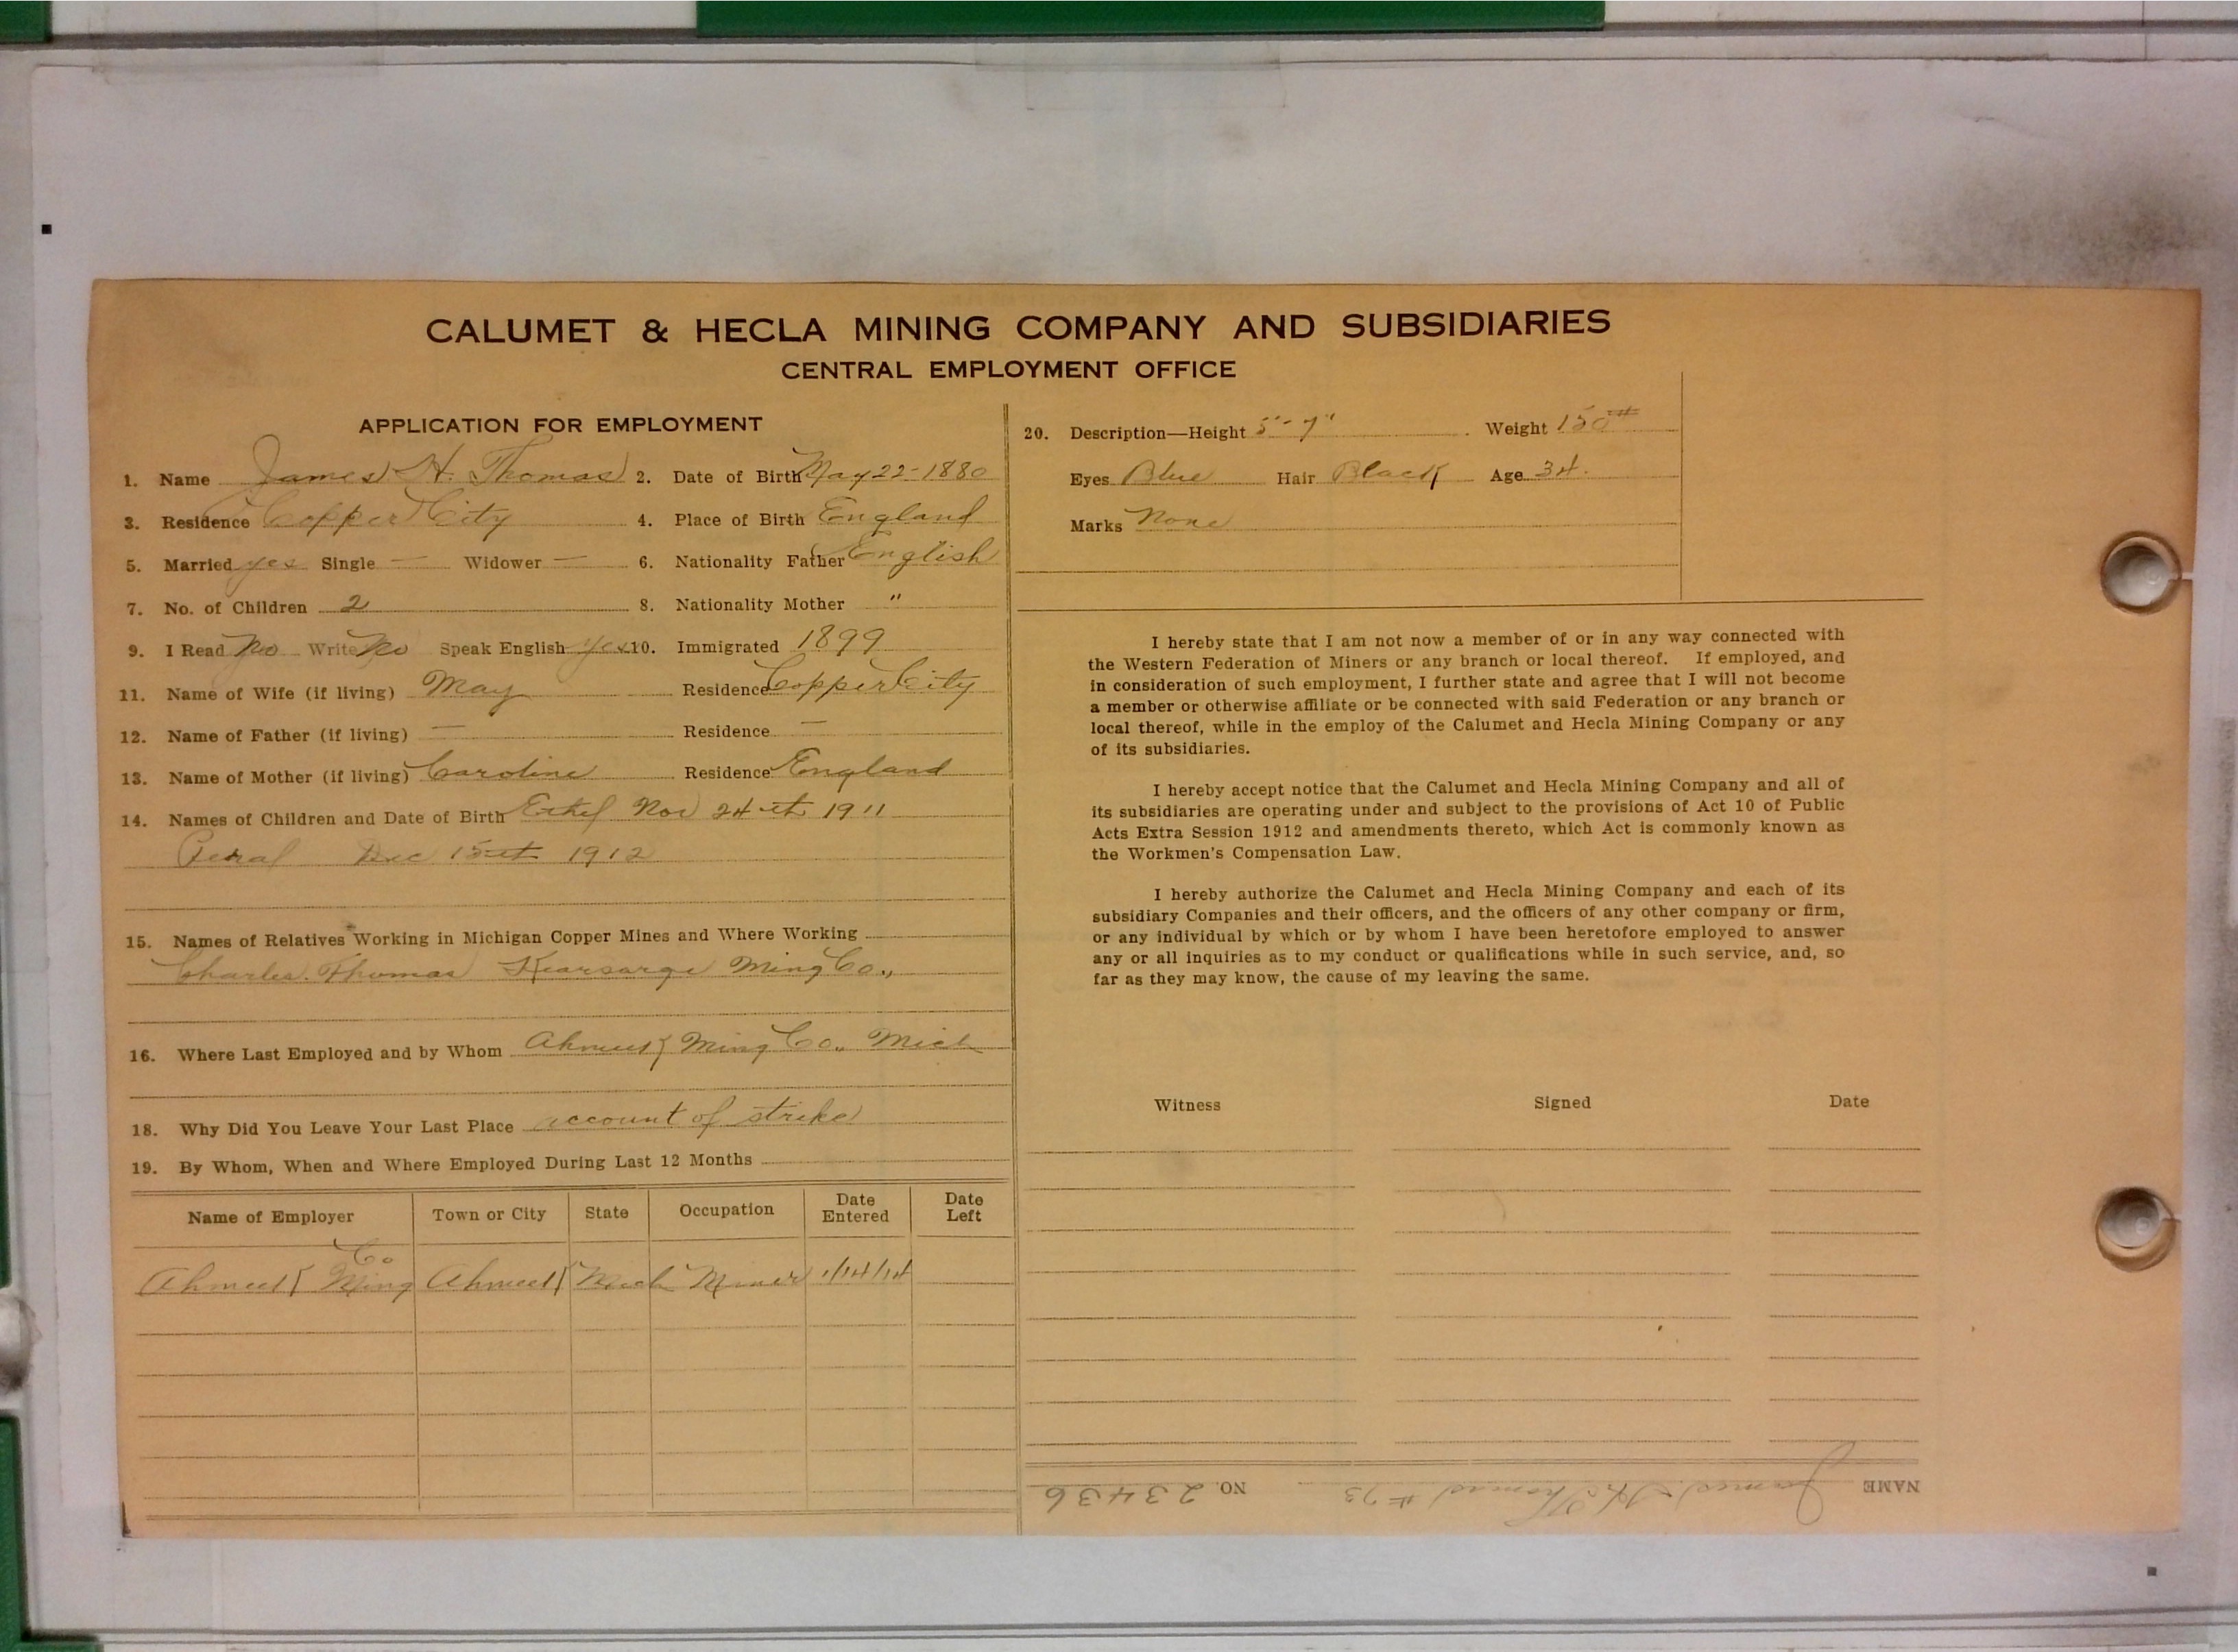 CALUMET & HECLA MINING COMPANY AND SUBSIDIARIES
CENTRAL EMPLOYMENT OFFICE
APPLICATION FOR EMPLOYMENT
1. Name James H. Thomas 2. Date of Birth May 22-1880
3. Residence Copper City 4. Place of Birth England
5. Married yes Single — Widower — 6. Nationality Father English
7. No. of Children 2 8. Nationality Mother "
9. I Read No Write No Speak English yes 10. Immigrated 1899
11. Name of Wife (if living) May Residence Copper City
12. Name of Father (if living) — Residence —
13. Name of Mother (if living) Caroline Residence England
14. Names of Children and Date of Birth Ethel Nov 24th 1911
Dec 15th 1912
15. Names of Relatives Working in Michigan Copper Mines and Where Working
Charles. Thomas Kearsarge Ming Co.,
16. Where Last Employed and by Whom Ahmeek Ming Co. Mich
18. Why Did You Leave Your Last Place account of strike
19. By Whom, When and Where Employed During Last 12 Months
Name of Employer Town or City State Occupation Date Entered Date Left
Ahmeek Ming Co Ahmeek Mich Miner 1/14/14
20. Description—Height 5'-7" Weight 150#
Eyes Blue Hair Black Age 34.
Marks None
I hereby state that I am not now a member of or in any way connected with
the Western Federation of Miners or any branch or local thereof. If employed, and
in consideration of such employment, I further state and agree that I will not become
a member or otherwise affiliate or be connected with said Federation or any branch or
local thereof, while in the employ of the Calumet and Hecla Mining Company or any
of its subsidiaries.
I hereby accept notice that the Calumet and Hecla Mining Company and all of
its subsidiaries are operating under and subject to the provisions of Act 10 of Public
Acts Extra Session 1912 and amendments thereto, which Act is commonly known as
the Workmen's Compensation Law.
I hereby authorize the Calumet and Hecla Mining Company and each of its
subsidiary Companies and their officers, and the officers of any other company or firm,
or any individual by which or by whom I have been heretofore employed to answer
any or all inquiries as to my conduct or qualifications while in such service, and, so
far as they may know, the cause of my leaving the same.
Witness Signed Date
NAME James H. Thomas #73 NO. 23436